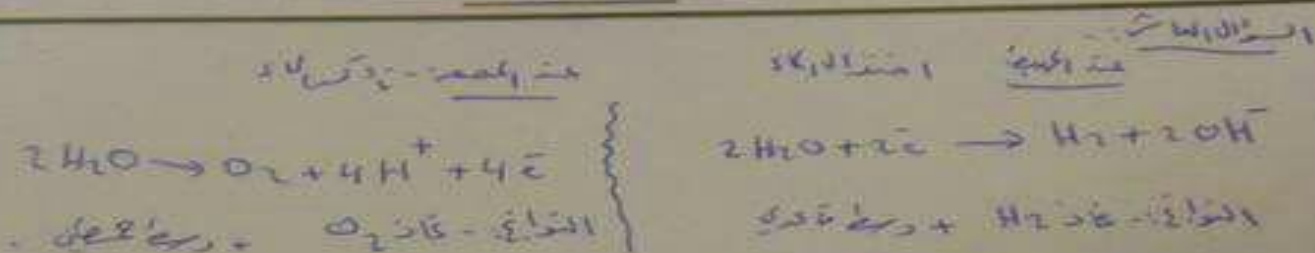 السؤال العاشر:
عند المهبط اختزال الماء
2H2O + 2e⁻ → H2 + 2OH⁻
النواتج - غاز H2 + وسط قاعدي
عند المصعد - تأكسد الماء
2H2O → O2 + 4H⁺ + 4e⁻
النواتج - غاز O2 + وسط حمضي .